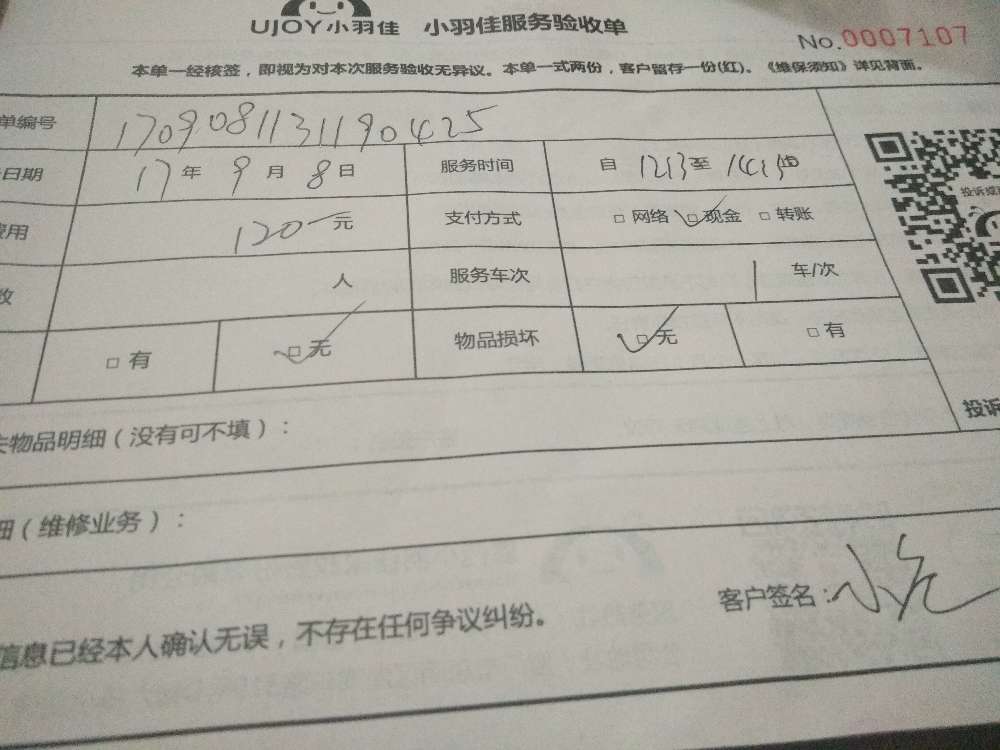 UJOY小羽佳 小羽佳服务验收单
No.0007107
本单一经核签，即视为对本次服务验收无异议。本单一式两份，客户留存一份(红)。《维保须知》详见背面。
单编号 17090811311190425
日期 17年9月8日 服务时间 自1213至1413
费用 120元 支付方式 □网络 □现金 □转账
收 人 服务车次 1车/次
□有 □无 物品损坏 □无 □有
投诉
失物品明细（没有可不填）：
细（维修业务）：
客户签名：
信息已经本人确认无误，不存在任何争议纠纷。